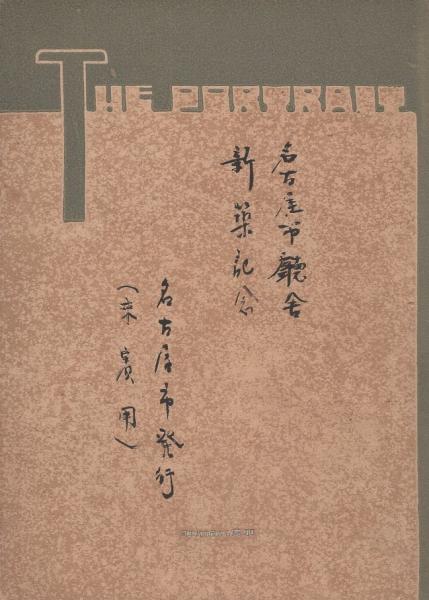 THE PORTRAIT
名古屋市廳舎
新築記念
名古屋市発行
（来賓用）